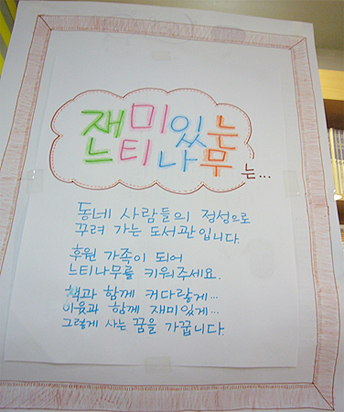 재미있는
느티나무
는...
동네 사람들의 정성으로
꾸려 가는 도서관입니다.
후원 가족이 되어
느티나무를 키워주세요.
책과 함께 커다랗게...
이웃과 함께 재미있게...
그렇게 사는 꿈을 가꿉니다.